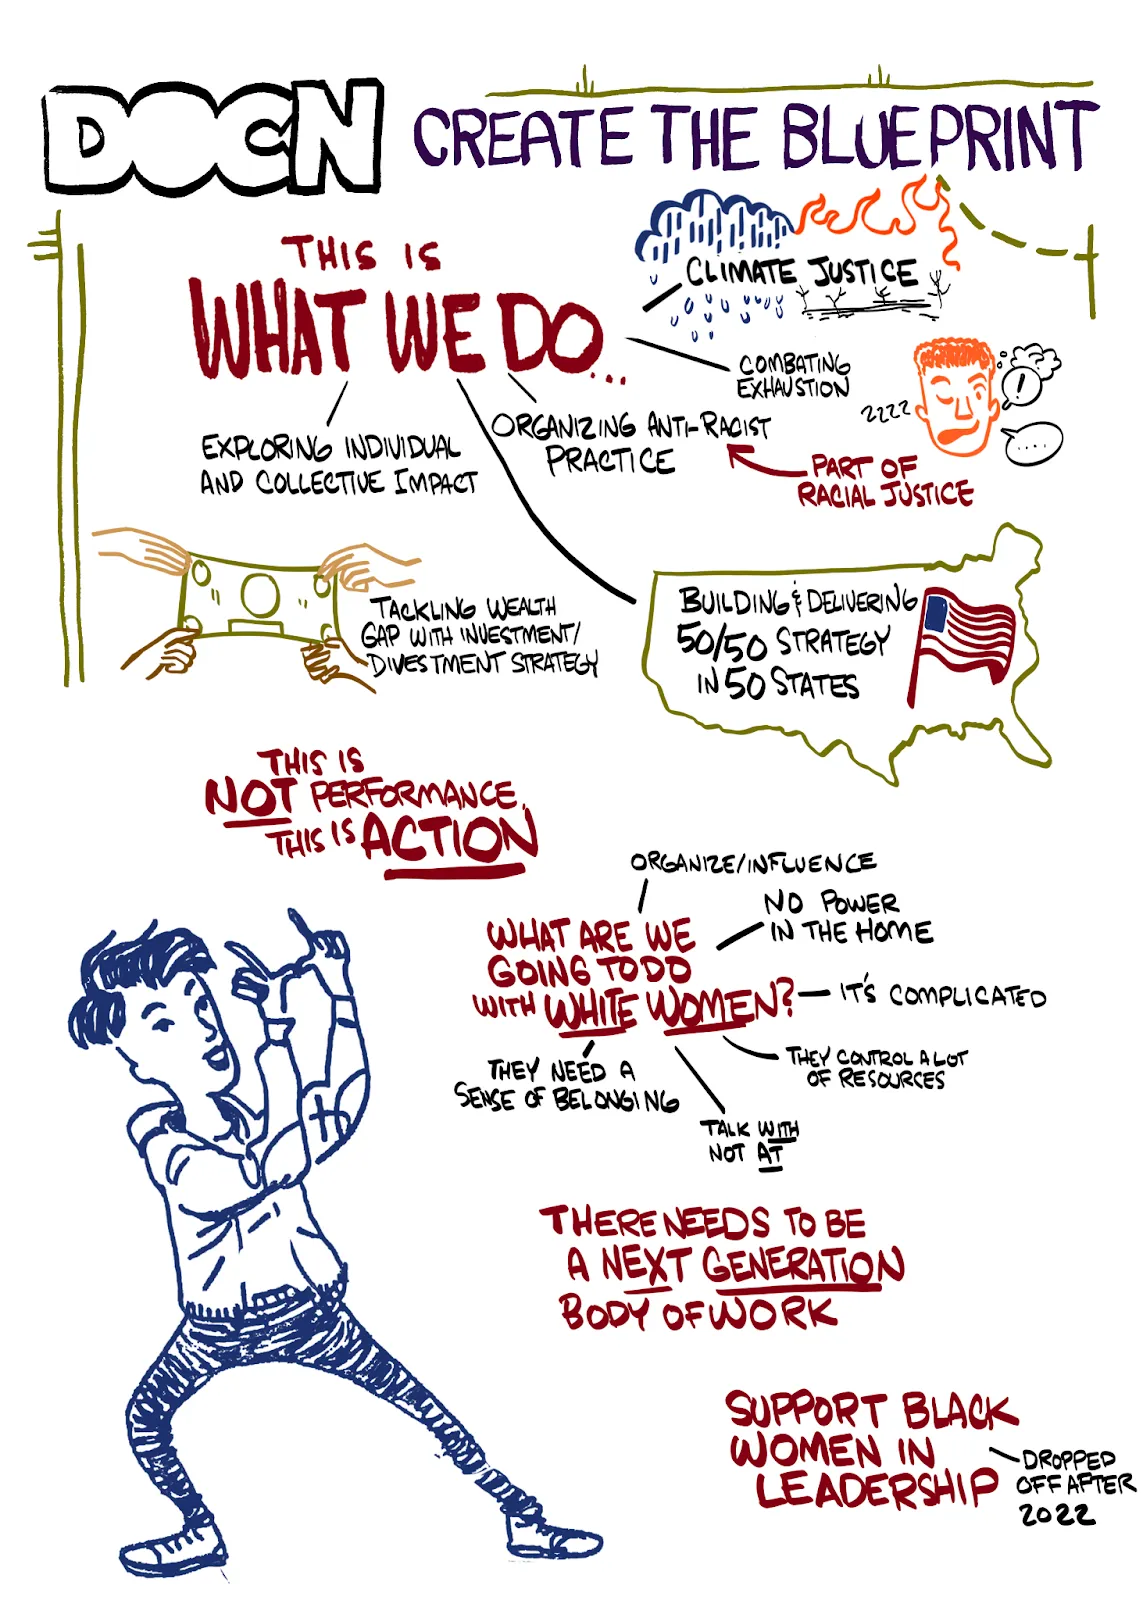 DOCN
CREATE THE BLUEPRINT
THIS IS
WHAT WE DO...
CLIMATE JUSTICE
COMBATING
EXHAUSTION
ZZZZ
!
....
ORGANIZING ANTI-RACIST
PRACTICE
PART OF
RACIAL JUSTICE
EXPLORING INDIVIDUAL
AND COLLECTIVE IMPACT
TACKLING WEALTH
GAP WITH INVESTMENT/
DIVESTMENT STRATEGY
BUILDING & DELIVERING
50/50 STRATEGY
IN 50 STATES
THIS IS
NOT PERFORMANCE,
THIS IS ACTION
ORGANIZE/INFLUENCE
NO POWER
IN THE HOME
WHAT ARE WE
GOING TO DO
WITH WHITE WOMEN?
IT'S COMPLICATED
THEY CONTROL A LOT
OF RESOURCES
THEY NEED A
SENSE OF BELONGING
TALK WITH
NOT AT
THERE NEEDS TO BE
A NEXT GENERATION
BODY OF WORK
SUPPORT BLACK
WOMEN IN
LEADERSHIP
DROPPED
OFF AFTER
2022